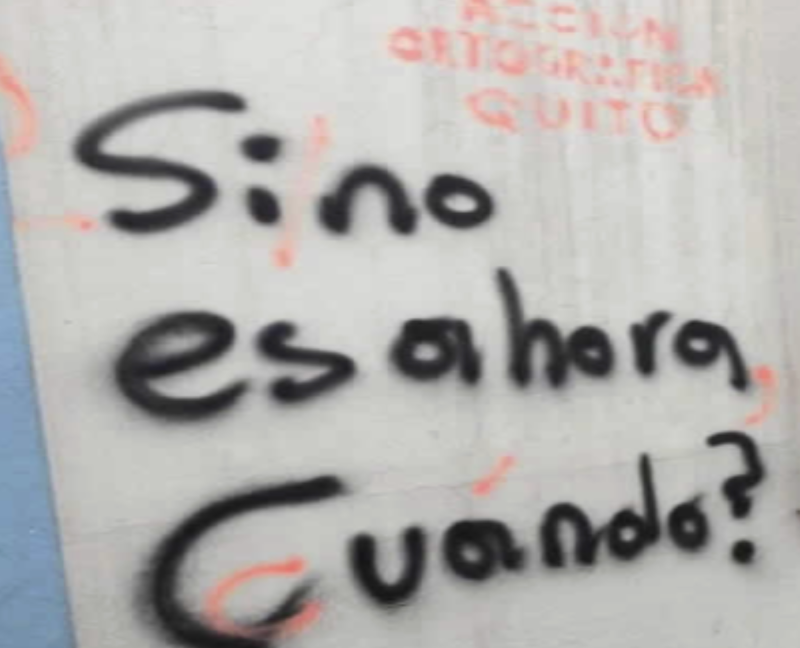 ACCIÓN
ORTOGRÁFICA
QUITO
Si no
es ahora,
cuándo?